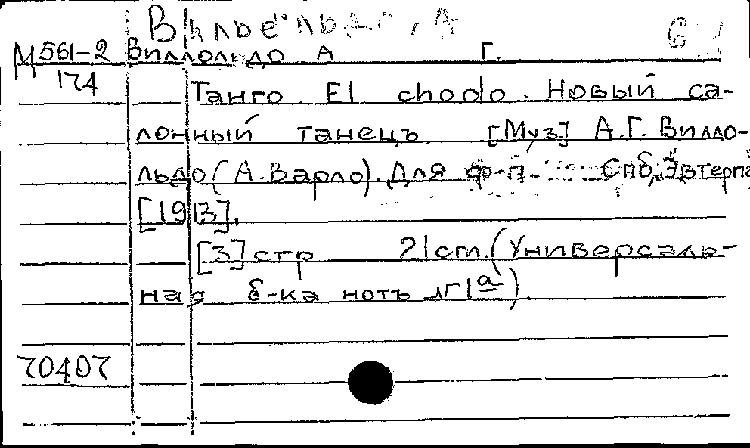 М 561-2 Виллольдо А Г.
174
Танго. El chodo. Новый са-
лонный танецъ. [Муз] А.Г. Виллo-
льдо (А. Варло). Для ф-п. Спб, „Эвтерпа
[1913].
[3] стр 21 см. (Универсаль-
ная б-ка нотъ № 1а)
70407